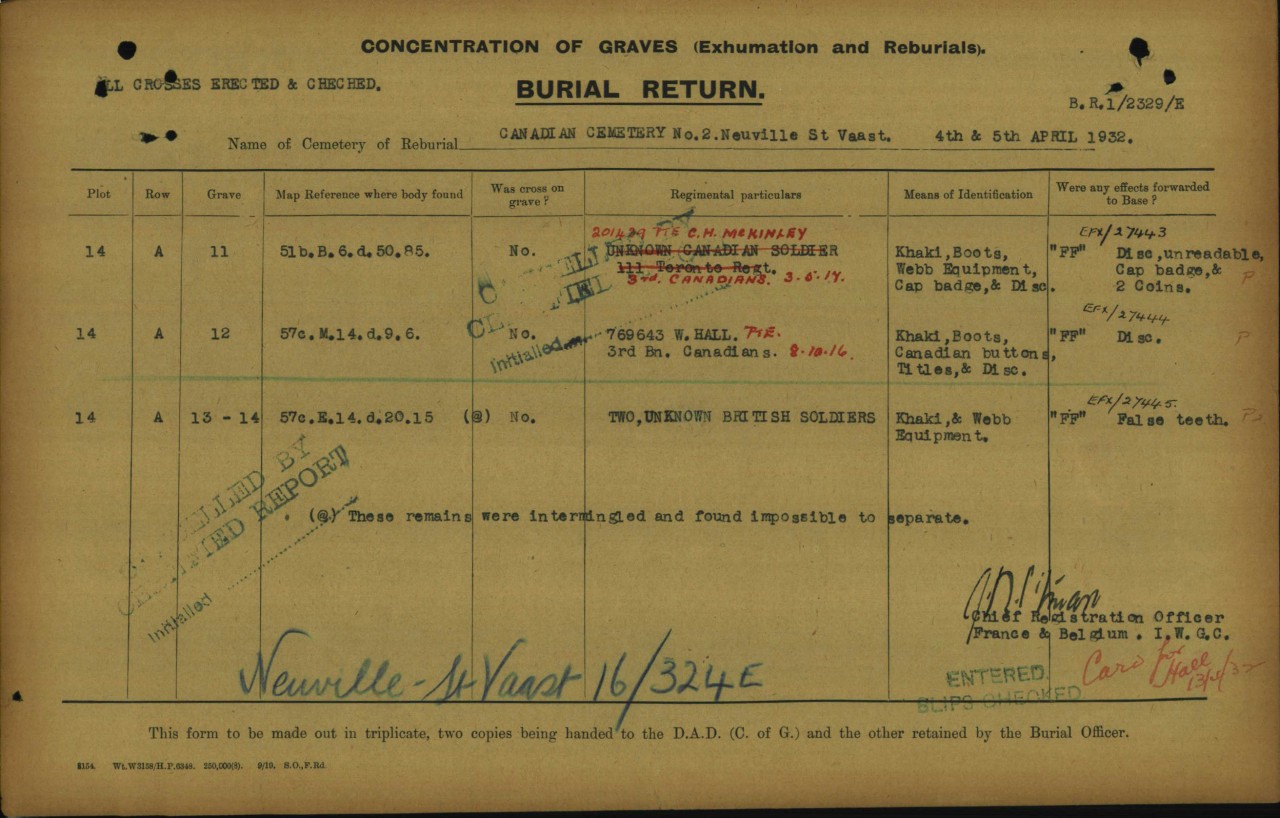 CONCENTRATION OF GRAVES (Exhumation and Reburials).
ALL CROSSES ERECTED & CHECHED.
BURIAL RETURN.
B.R.1/2329/E
Name of Cemetery of Reburial CANADIAN CEMETERY No.2.Neuville St Vaast. 4th & 5th APRIL 1932.
Plot Row Grave Map Reference where body found Was cross on grave? Regimental particulars Means of Identification Were any effects forwarded to Base?
201429 PTE C.H. McKINLEY EFX/27443
14 A 11 51b.B.6.d.50.85. No. UNKNOWN CANADIAN SOLDIER Khaki,Boots, "FF" Disc,unreadable,
111 Toronto Regt. Webb Equipment, Cap badge,& P
3rd. CANADIANS. 3.5.17. Cap badge,& Disc. 2 Coins.
CANCELLED BY
CERTIFIED
Initialled
EFX/27444
14 A 12 57c.M.14.d.9.6. No. 769643 W.HALL. PTE. Khaki,Boots, "FF" Disc. P
3rd Bn. Canadians. 8.10.16. Canadian buttons,
Titles,& Disc.
EFX/27445.
14 A 13 - 14 57c.E.14.d.20.15 (@) No. TWO,UNKNOWN BRITISH SOLDIERS Khaki,& Webb "FF" False teeth.
Equipment.
CANCELLED BY
CERTIFIED REPORT
Initialled
(@) These remains were intermingled and found impossible to separate.
Chief Registration Officer
France & Belgium. I.W.G.C.
Neuville-St Vaast 16/324E
ENTERED.
SLIPS CHECKED
Card for
Hall
This form to be made out in triplicate, two copies being handed to the D.A.D. (C. of G.) and the other retained by the Burial Officer.
Wt.W3158/H.P.6348. 250,000(8). 9/19. S.O.,F.Rd.